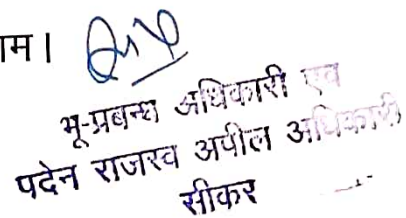 ाम।
भू-प्रबन्ध अधिकारी एवं
पदेन राजस्व अपील अधिकारी
सीकर